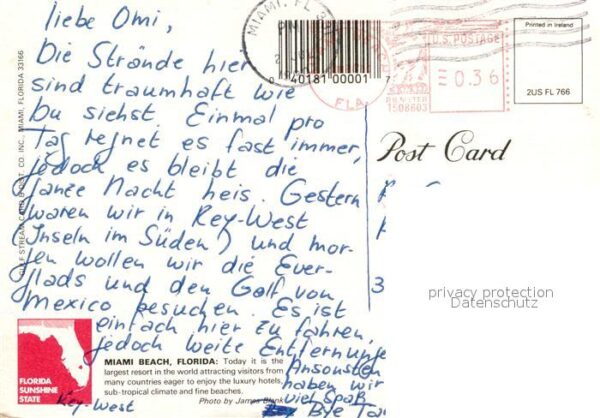 liebe Omi,
Die Strände hier
sind traumhaft wie
Du siehst. Einmal pro
Tag regnet es fast immer,
jedoch es bleibt die
ganze Nacht heis. Gestern
waren wir in Key-West
(Inseln im Süden!) und mor-
gen wollen wir die Ever-
glads und den Golf von
Mexico besuchen. Es ist
einfach hier zu fahren,
jedoch weite Entfernunge
Ansonsten
haben wir
viel Spaß
Bye Ta
Key-West
MIAMI, FL
PM
0 40181 00001 7
FLA.
PB METER
1508603
U.S. POSTAGE
0.36
Printed in Ireland
2US FL 766
Post Card
GULF STREAM CARD & DIST. CO. INC., MIAMI, FLORIDA 33166
privacy protection
Datenschutz
FLORIDA
SUNSHINE
STATE
MIAMI BEACH, FLORIDA: Today it is the
largest resort in the world attracting visitors from
many countries eager to enjoy the luxury hotels,
sub-tropical climate and fine beaches.
Photo by James Blank